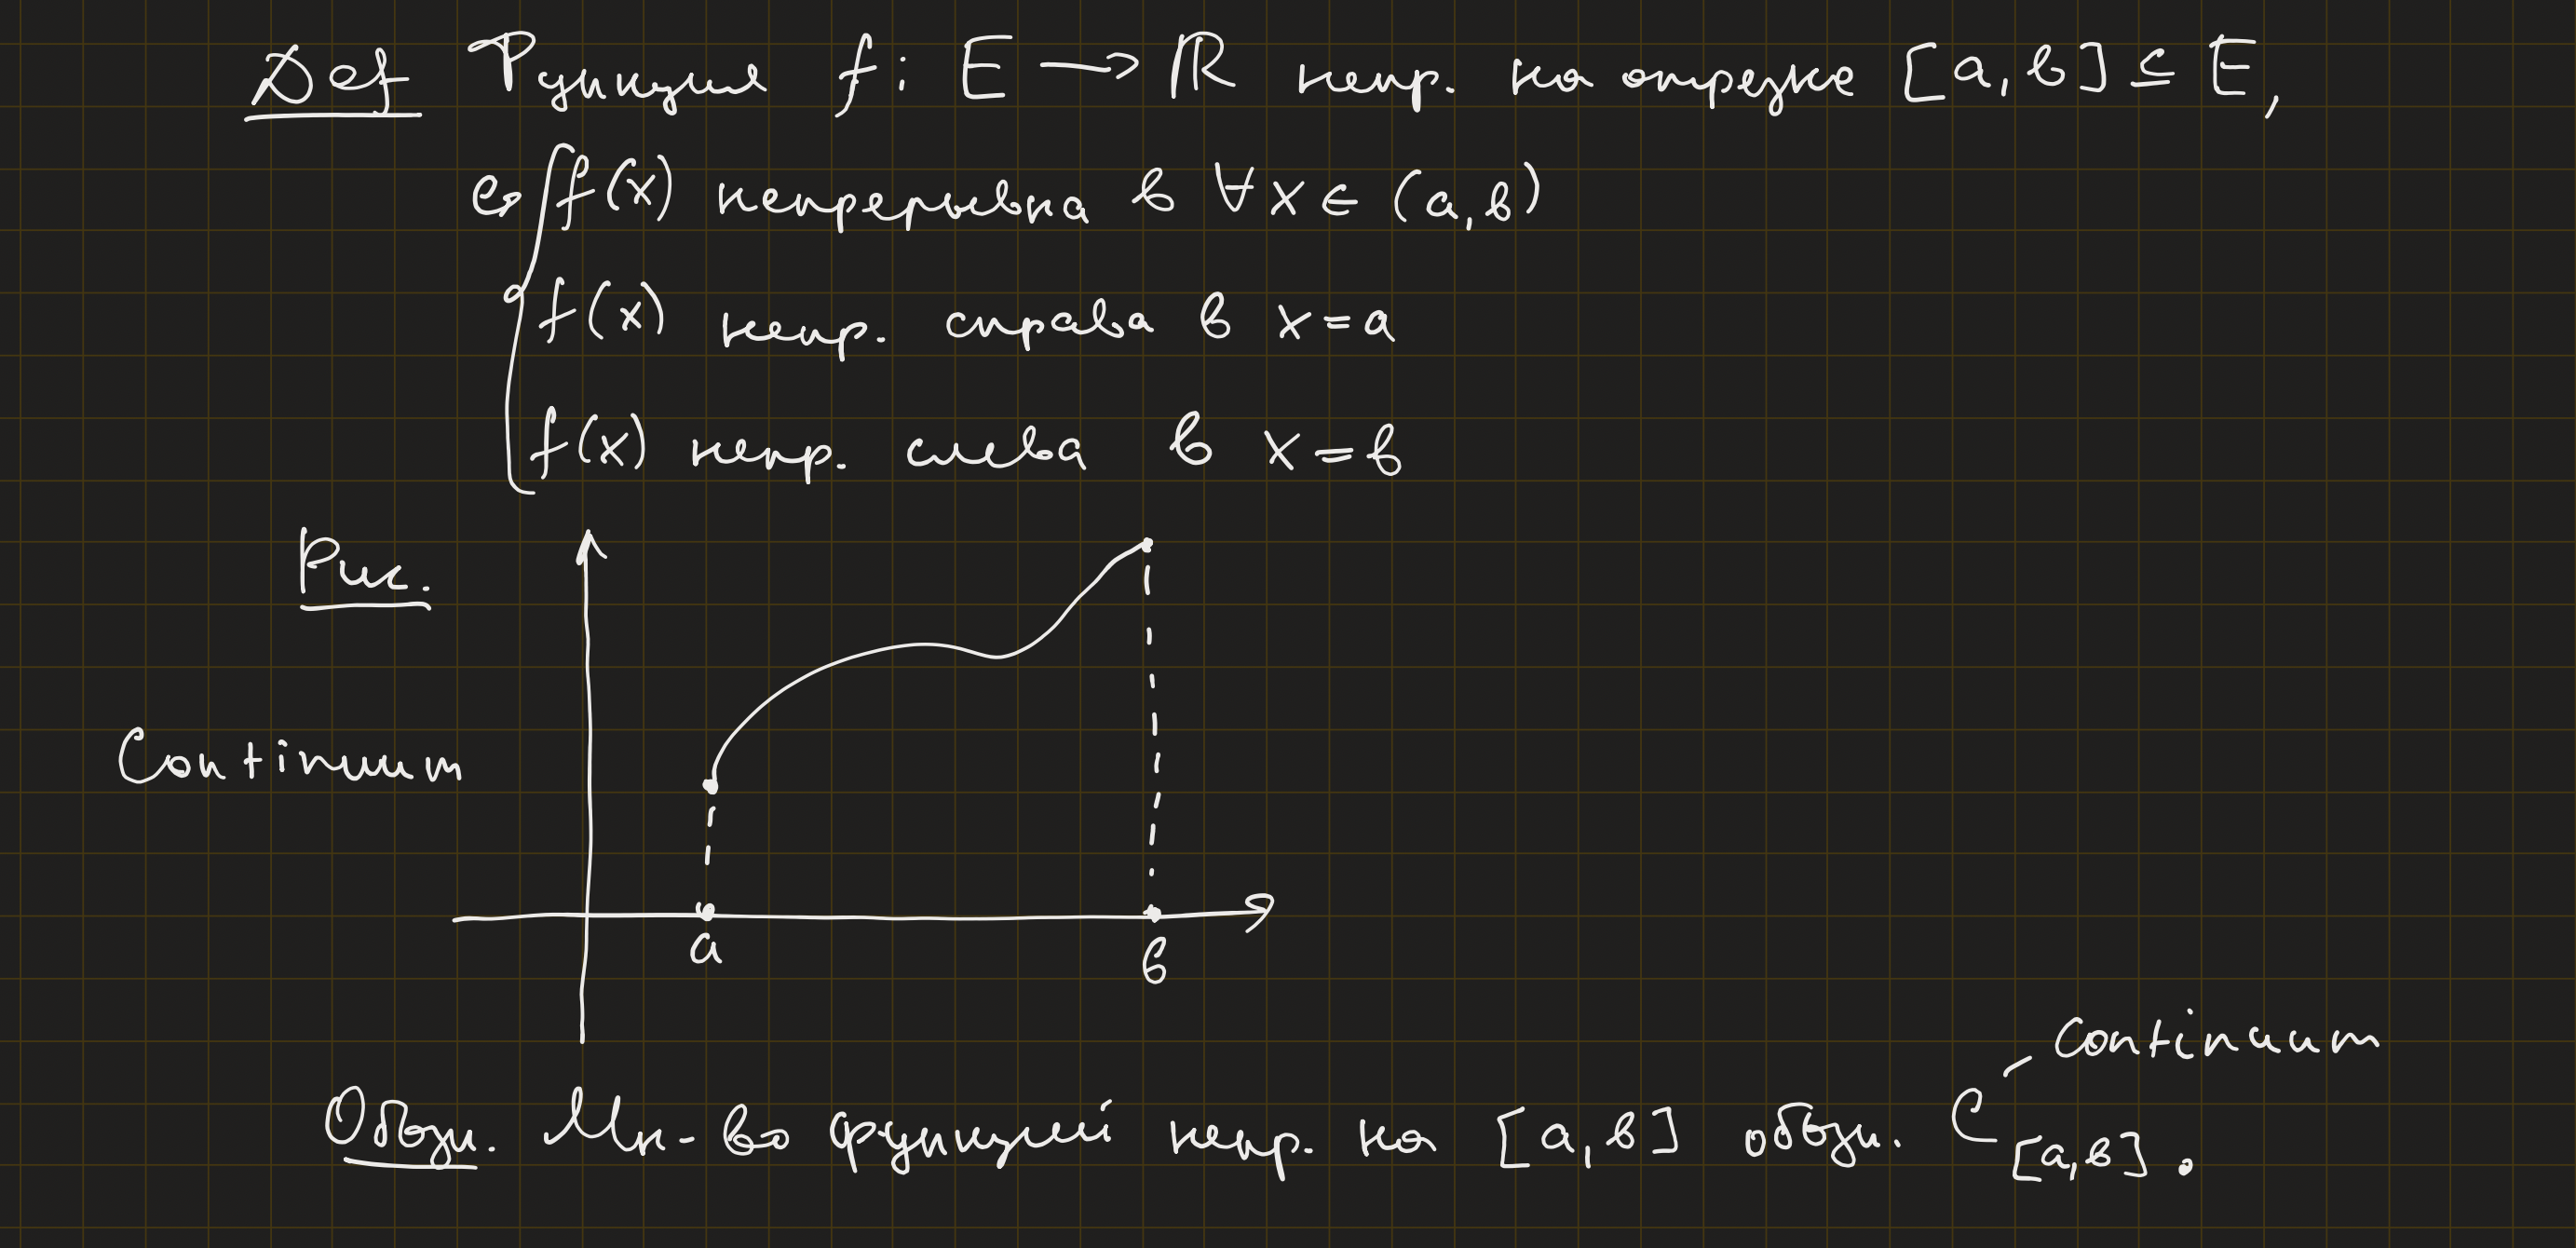 Def Функция f: E → ℝ непр. на отрезке [a, b] ⊆ E,
если f(x) непрерывна в ∀ x ∈ (a, b)
f(x) непр. справа в x = a
f(x) непр. слева в x = b
Рис.
Continuum
a b
Continuum
Обозн. Мн-во функций непр. на [a, b] обозн. C[a,b].